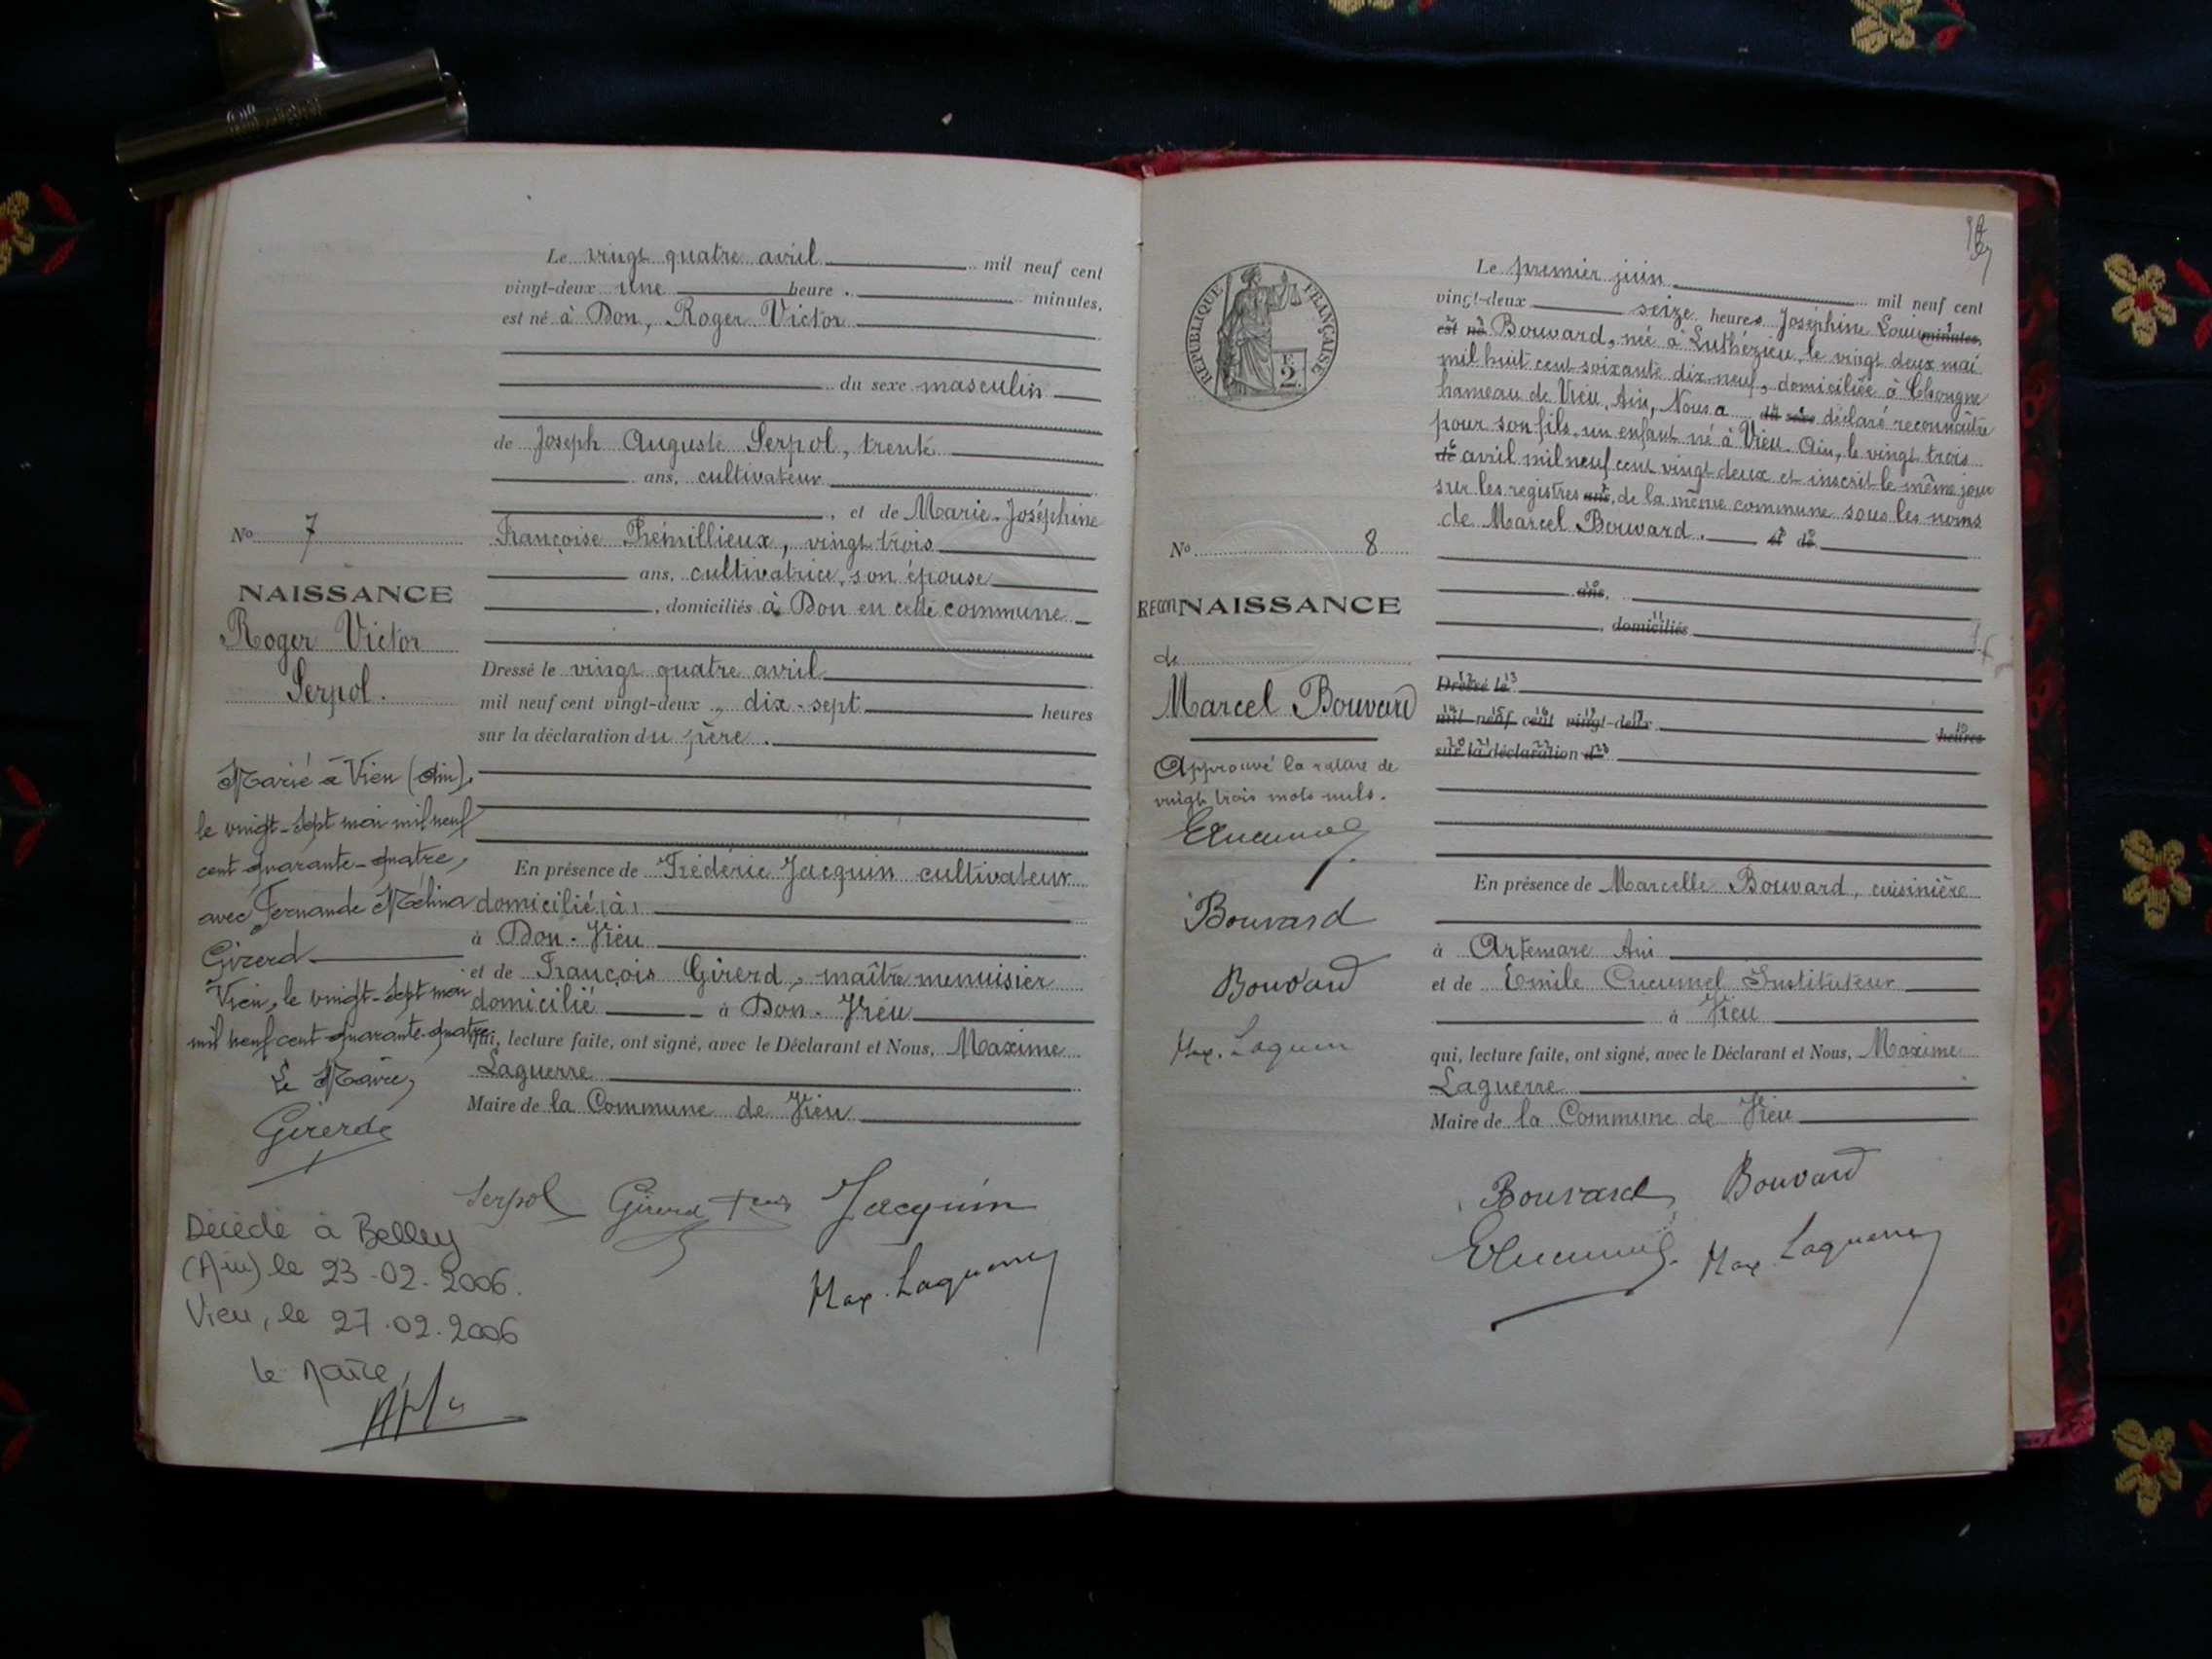 Le vingt quatre avril mil neuf cent
vingt-deux une heure minutes,
est né à Don, Roger Victor
du sexe masculin
de Joseph Auguste Serpol, trente
ans, cultivateur
, et de Marie-Joséphine
Françoise Prémillieux, vingt trois
ans, cultivatrice, son épouse
, domiciliés à Don en cette commune
Dressé le vingt quatre avril
mil neuf cent vingt-deux, dix-sept heures
sur la déclaration du père.
En présence de Frédéric Jacquin cultivateur
domicilié à
à Don-Vieu
et de François Girerd, maître menuisier
domicilié à Don-Vieu
qui, lecture faite, ont signé, avec le Déclarant et Nous, Maxime
Laguerre
Maire de la Commune de Vieu
Serpol Girerd Jacquin
Max. Laguerre
No 7
NAISSANCE
Roger Victor
Serpol.
Marié à Vieu (Ain),
le vingt-sept mai mil neuf
cent quarante-quatre,
avec Fernande Mélina
Girerd
Vieu, le vingt-sept mai
mil neuf cent quarante-quatre
Le Maire,
Girerd
Décédé à Belley
(Ain) le 23.02.2006.
Vieu, le 27.02.2006
le Maire,
RÉPUBLIQUE FRANÇAISE
F
2
Le premier juin mil neuf cent
vingt-deux seize heures Joséphine minutes,
est né Bouvard, née à Luthézieu, le vingt deux mai
mil huit cent soixante dix-neuf, domiciliée à Chongne
hameau de Vieu, Ain, Nous a du sexe déclaré reconnaître
pour son fils, un enfant né à Vieu. Ain, le vingt trois
de avril mil neuf cent vingt deux et inscrit le même jour
sur les registres ans, de la même commune sous les noms
de Marcel Bouvard. et de
ans,
, domiciliés
Dressé le
mil neuf cent vingt-deux heures
sur la déclaration d
En présence de Marcelle Bouvard, cuisinière
à Artemare Ain
et de Emile Cucumel Instituteur
à Vieu
qui, lecture faite, ont signé, avec le Déclarant et Nous, Maxime
Laguerre
Maire de la Commune de Vieu
Bouvard Bouvard
ECucumel Max Laguerre
No 8
RECONNAISSANCE
de
Marcel Bouvard
Approuvé la rature de
vingt trois mots nuls.
ECucumel
Bouvard
Bouvard
Max. Laguerre